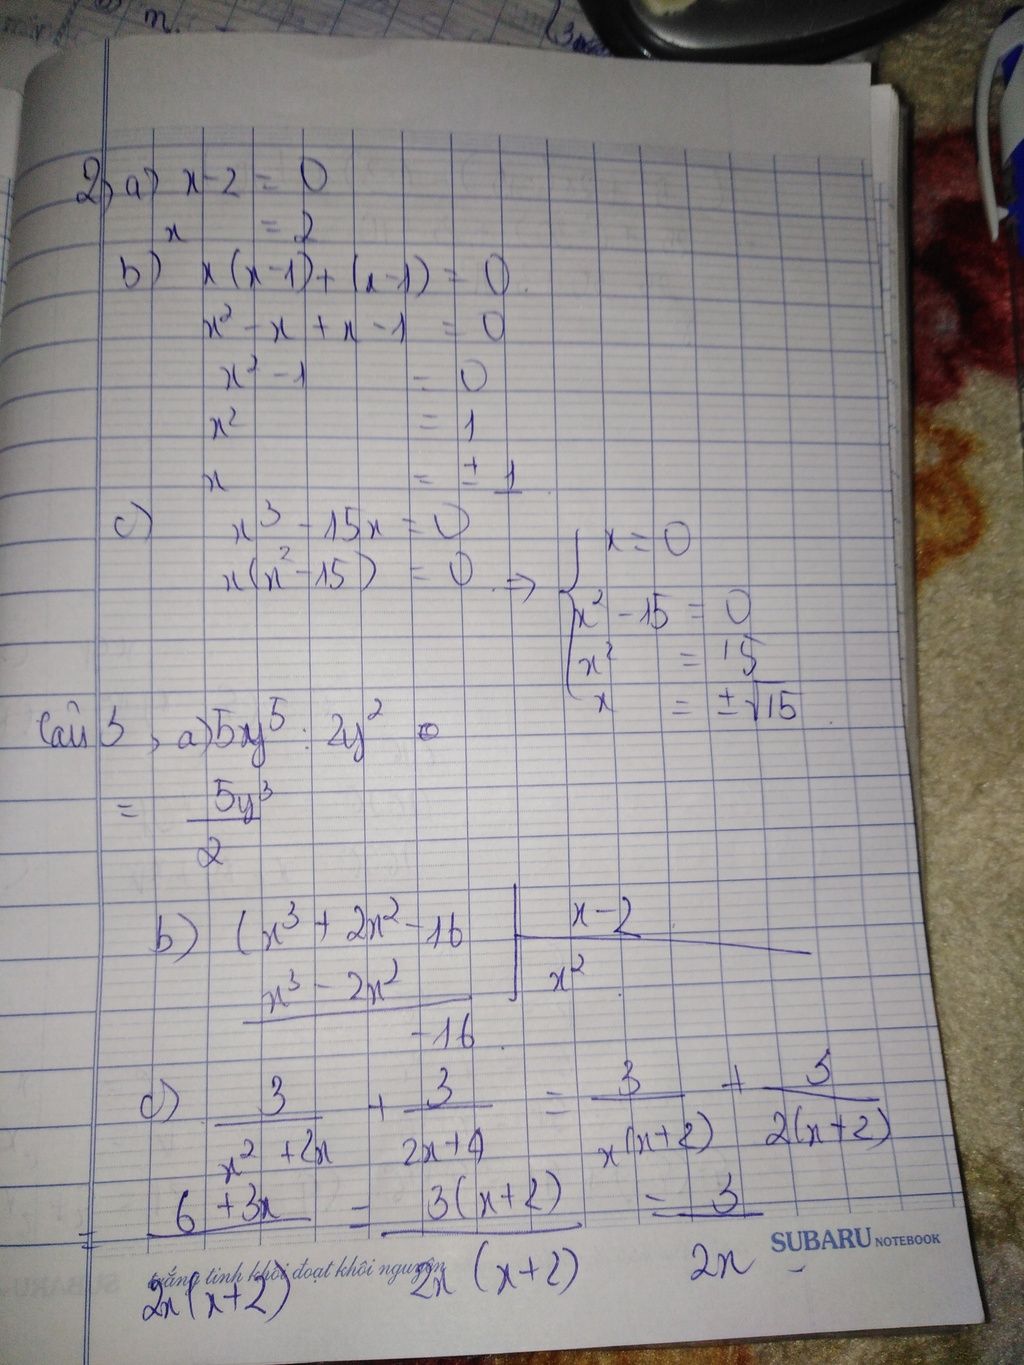 2, a) x-2 = 0
x = 2
b) x(x-1) + (x-1) = 0
x² - x + x - 1 = 0
x² - 1 = 0
x² = 1
x = ± 1
c) x³ - 15x = 0
x(x² - 15) = 0 → { x = 0
x² - 15 = 0
x² = 15
x = ±√15
Câu 3, a) 5xy⁵ : 2y²
= 5y³/2
b) (x³ + 2x² - 16 | x - 2
x³ - 2x² | x²
-16
c) 3/(x² + 2x) + 3/(2x+4) = 3/(x(x+2)) + 3/(2(x+2))
= (6 + 3x)/(2x(x+2)) = 3(x+2)/(2x(x+2)) = 3/(2x)
SUBARU NOTEBOOK
trắng tinh khôi đoạt khôi nguyên